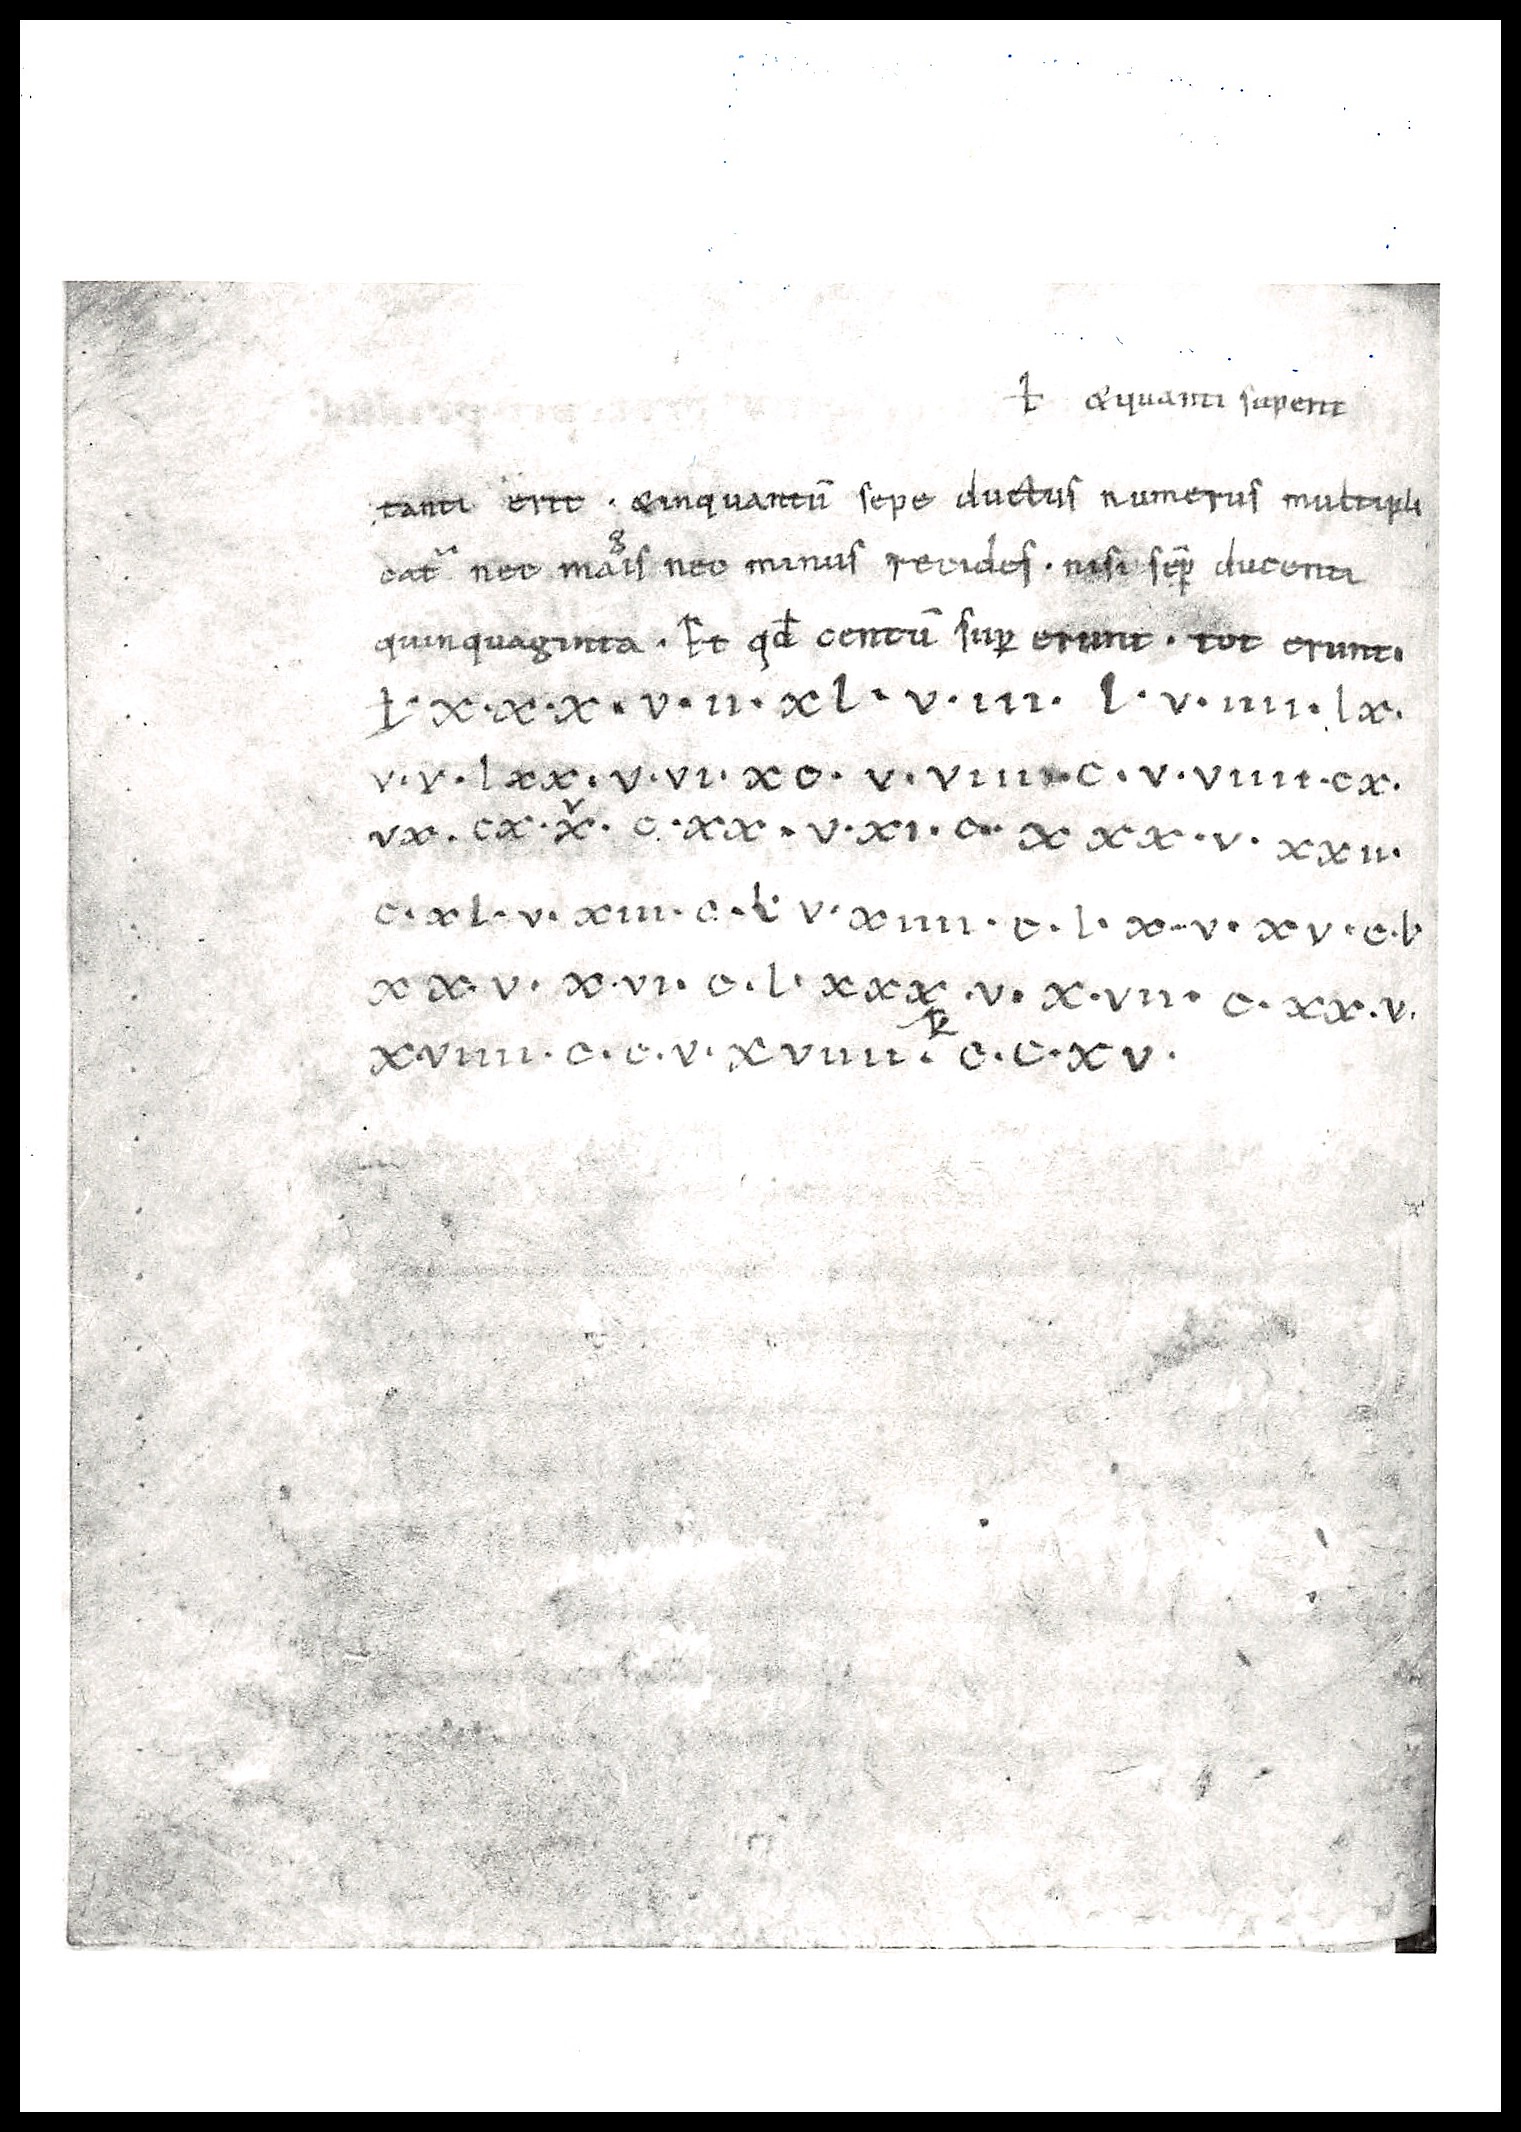 ꝉ &quanti superit
tanti erit · &inquantū sepe ductus numerus multipli
cat᷑ nec mais nec minus recides · nisi sēꝑ ducenti
quinquaginta · Et qđ centū suꝑ erunt · tot erunt·
ꝉ· x·x·x· v· ii· xl· v· iii· l· v· iiii· lx·
v·v· lxx· v·vi· xc· v· viiii· c· v· viiii· cx·
vx· cx·x· c·xx· v·xi· c· x xx·v· xxii·
c· xl· v· xiii· c·l· v· xiiii· c· l· x· v· xv· c·l
x x· v· x·vi· c·l· xxx ·v· x·vii· c· xx·v·
xviiii· c· c· v· xviiii· c·c·xv·